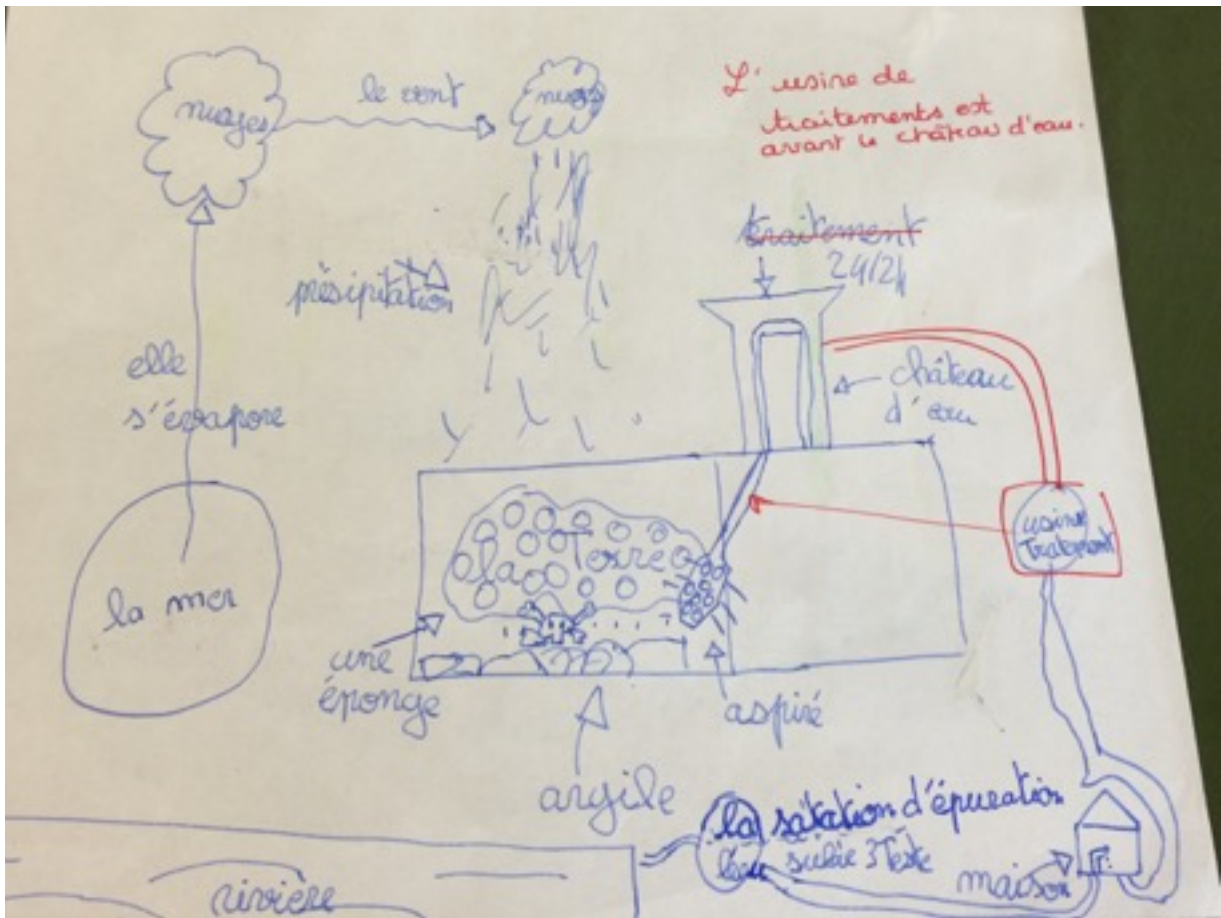 nuages
le vent
nuages
L'usine de
traitements est
avant le château d'eau.
traitement
24/24
présipitation
elle
s'évapore
château
d'eau
la Terre
usine
Traitement
la mer
une
éponge
aspiré
argile
la satation d'épuration
subie 3 Teste
maison
rivière